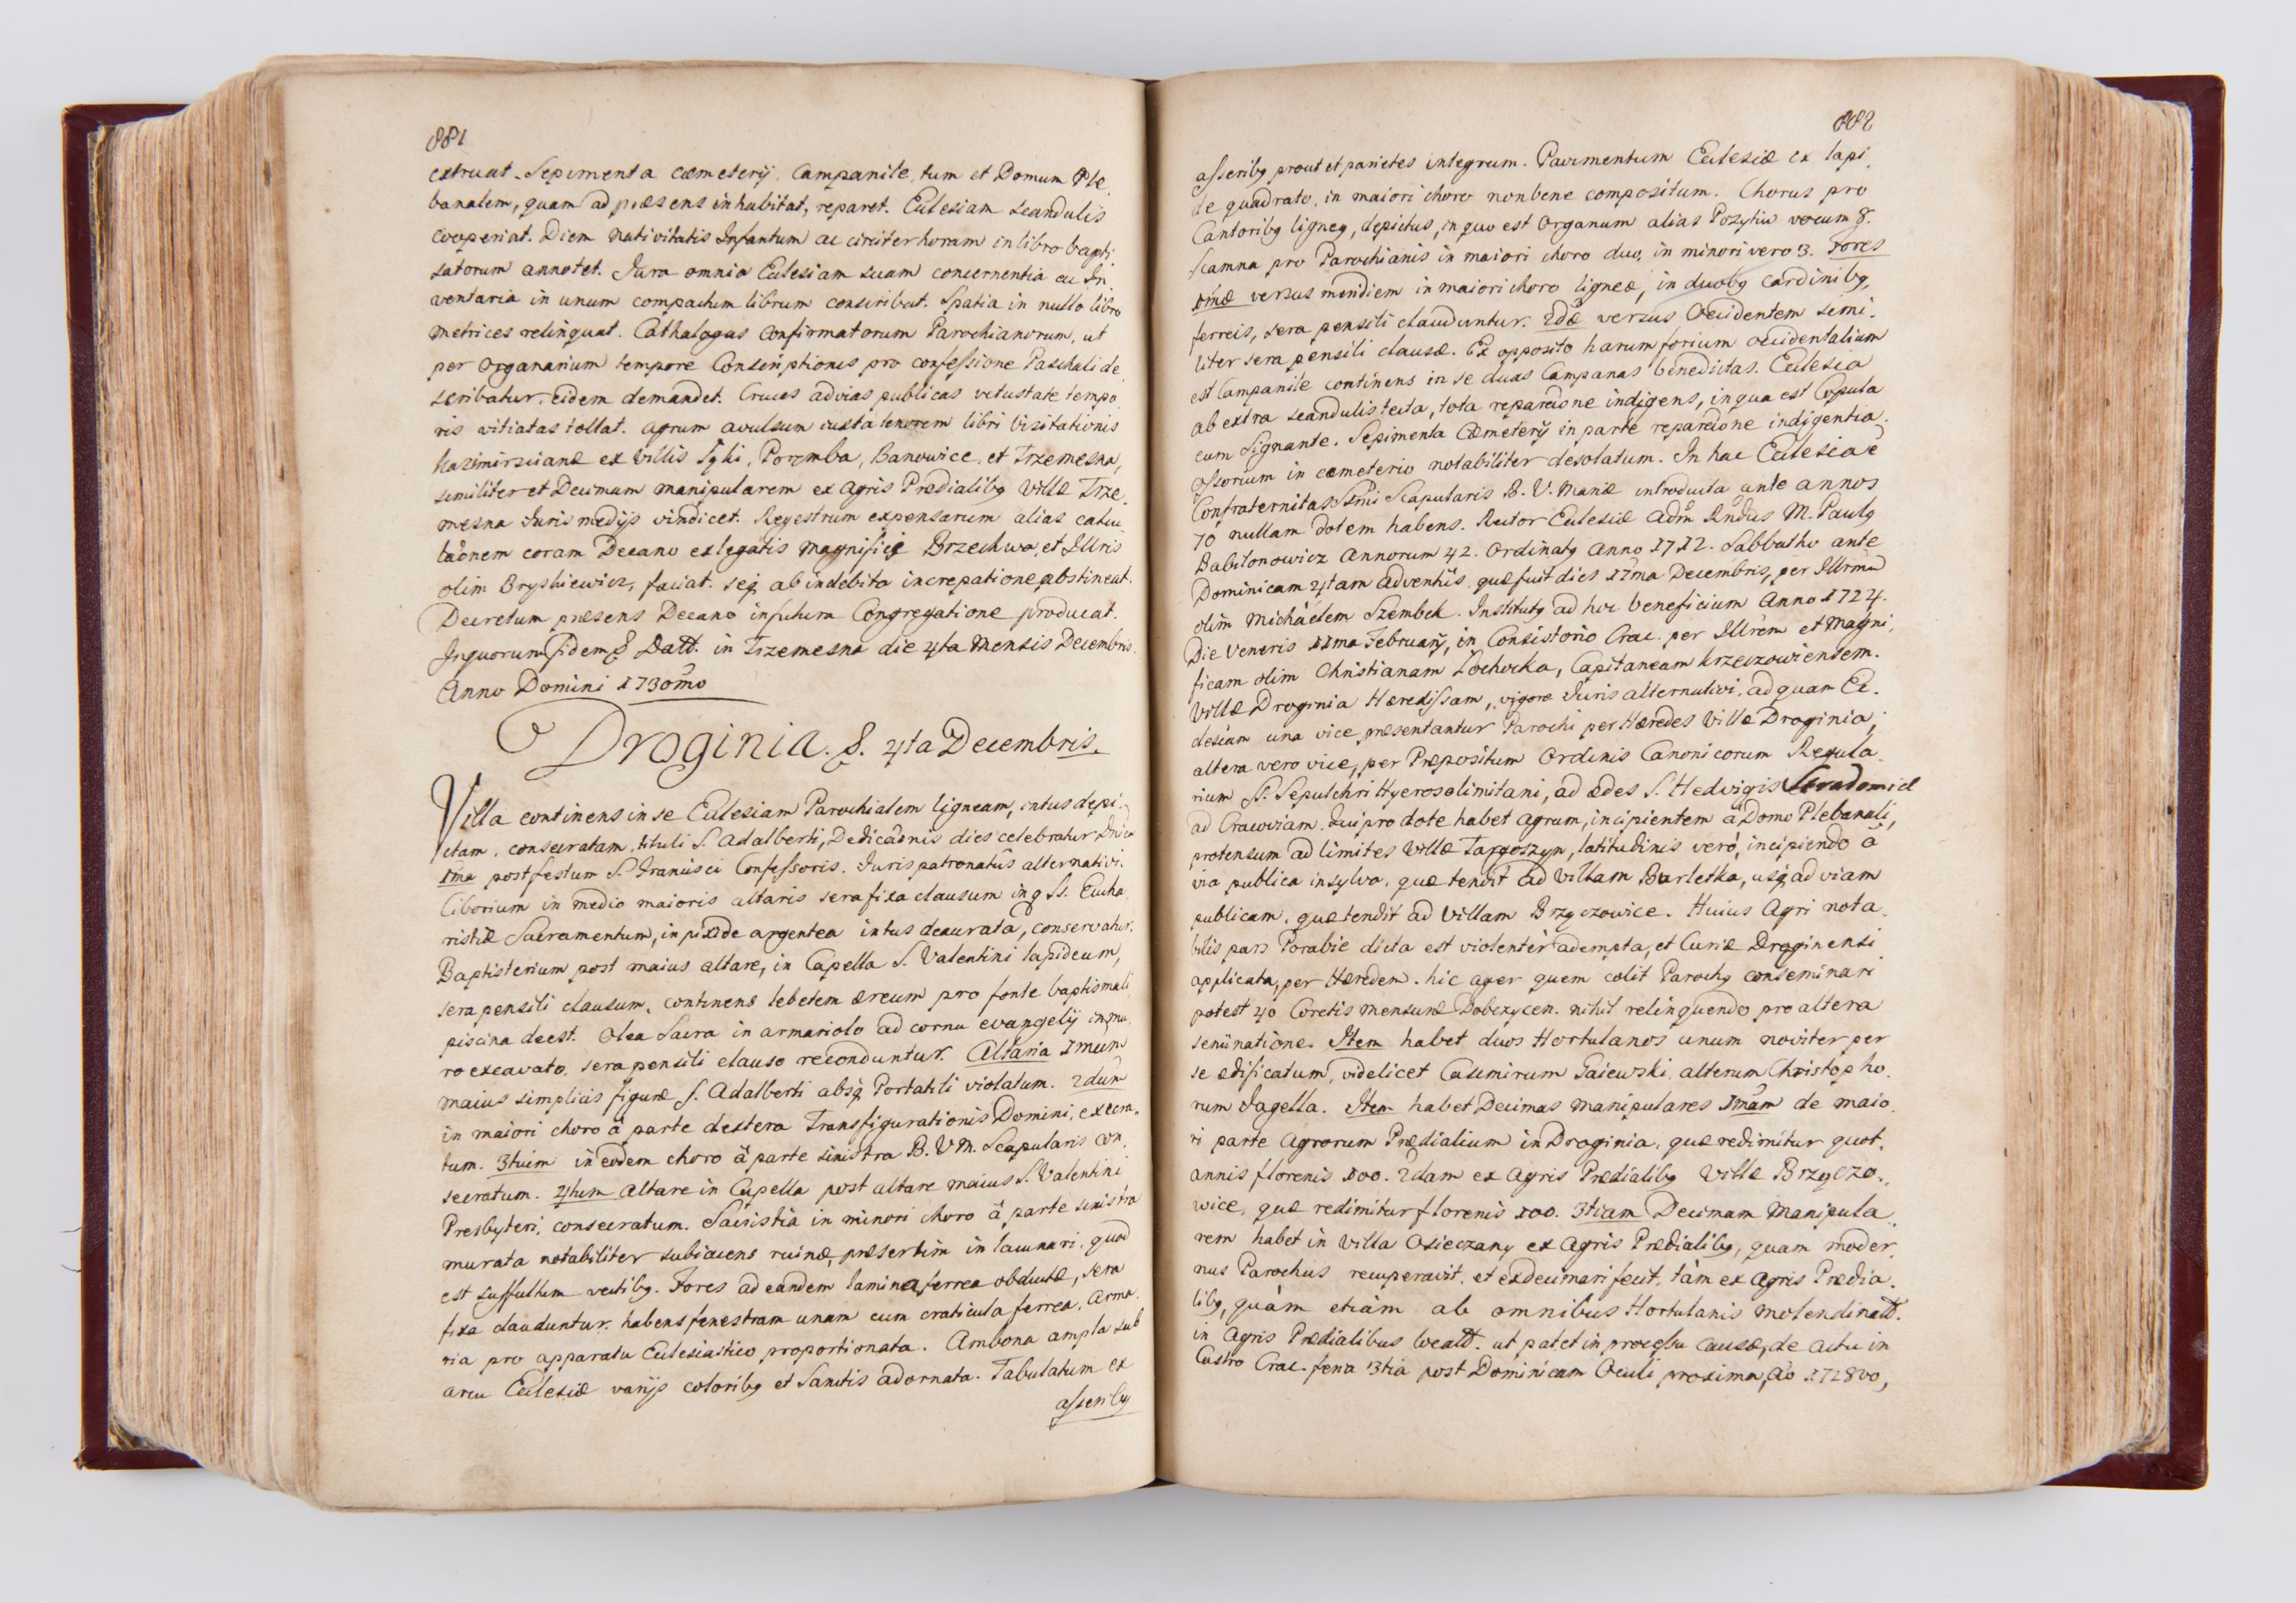 881
extruat. Sepimenta cæmeterij, Campanile, tum et Domum Ple
banalem, quam ad præsens inhabitat, reparet. Ecclesiam scandulis
cooperiat. Diem nativitatis Infantum ac circiter horam in libro bapti
satorum annotet. Jura omnia Ecclesiam suam concernentia ac In
ventaria in unum compactum librum conscribat. Spatia in nullo libro
metrices relinquat. Cathalogus Confirmatorum Parochianorum, ut
per Organarium tempore Conscriptionis pro confessione Paschali de
scribatur, eidem demandet. Cruces ad vias publicas vetustate tempo
ris vitiatas tollat. Agrum avulsum iuxta tenorem libri Visitationis
Kazimirscianæ ex Villis Łęki, Poręmba, Banowice, et Trzemesna,
similiter et Decimam manipularem ex Agris Prædialibq Villæ Trze
mesna Juris medijs vindicet. Regestrum expensarum alias calcu
laõnem coram Decano ex legatis Magnificę Brzechwa, et Illris
olim Bryskiewicz, faciat. seq ab indebita increpatione abstineat.
Decretum præsens Decano in futura Congregatione producat.
In quorum fidem &. Datt. in Trzemesna die 4ta Mensis Decembris
Anno Domini 1730mo
Droginia. &. 4ta Decembris.
Villa continens in se Ecclesiam Parochialem ligneam, intus depi
ctam, consecratam, tituli S. Adalberti, Dedicaõnis dies celebratur Dnica
1ma post festum S. Francisci Confessoris. Juris patronatûs alternativi.
Ciborium in medio maioris altaris sera fixa clausum in q Ss. Eucha
ristiæ Sacramentum, in pixide argentea intus deaurata, conservatur.
Baptisterium post maius altare, in Capella S. Valentini lapideum,
sera pensili clausum, continens lebetem æreum pro fonte baptismali,
piscina deest. Olea Sacra in armariolo ad cornu evangelij in mu
ro excavato, sera pensili clauso reconduntur. Altaria 1mum
maius simplicis figuræ S. Adalberti absq Portatili violatum. 2dum
in maiori choro â parte dextera Transfigurationis Domini, execra
tum. 3tium in eodem choro â parte sinistra B. V. M. Scapularis con
secratum. 4tum Altare in Capella post altare maius S. Valentini
Presbyteri, consecratum. Sacristia in minori choro â parte sinistra
murata notabiliter subiacens ruinæ, præsertim in lacunari, quod
est suffultum vectibq. Fores ad eandem lamina ferrea obductæ, sera
fixa clauduntur. habens fenestram unam cum craticula ferrea. Arma
ria pro apparatu Ecclesiastico proportionata. Ambona ampla sub
arcu Ecclesiæ varijs coloribq et Sanctis adornata. Tabulatum ex
asseribq
882
asseribq prout et parietes integrum. Pavimentum Ecclesiæ ex lapi
de quadrato, in maiori choro non bene compositum. Chorus pro
Cantoribq ligneq, depictus, in quo est Organum alias Pozytiw vocum 8.
Scamna pro Parochianis in maiori choro duo, in minori vero 3. Fores
1mæ versus meridiem in maiori choro ligneæ, in duobq Cardinibq,
ferreis, sera pensili clauduntur. 2dæ versus Occidentem simi
liter sera pensili clausæ. Ex opposito harum forium occidentalium
est Campanile continens in se duas Campanas benedictas. Ecclesia
ab extra scandulis tecta, tota reparaõne indigens, in qua est Copula
cum Signante. Sepimenta Cæmeterij in parte reparaõne indigentia.
Ossorium in cæmeterio notabiliter desolatum. In hac Ecclesia ẽ
Confraternitas Ssmi Scapularis B. V. Mariæ introducta ante annos
70 nullam dotem habens. Rector Ecclesiæ Adm Rndus M. Paulq
Babilonowicz Annorum 42. Ordinatq Anno 1712. Sabbatho ante
Dominicam 4tam Adventûs, quæ fuit dies 17ma Decembris, per Illrmu
olim Michâelem Szembek. Institutq ad hoc beneficium Anno 1724.
Die Veneris 11ma Februarij, in Consistorio Crac. per Illrem et Magni
ficam olim Christianam Łochocka, Capitaneam Krzeczowiensem.
Villæ Droginia Hæredissam, vigore Juris alternativi, ad quam Ec
clesiam una vice præsentantur Parochi per Hæredes Villæ Droginia,
altera vero vice, per Præpositum Ordinis Canonicorum Regula
rium Ss. Sepulchri Hyerosolimitani, ad ædes S. Hedvigis Stradomiæ
ad Cracoviam. Qui pro dote habet agrum, incipientem â Domo Plebanali,
protensum ad limites Villæ Targoszyn, latitudinis verò, incipiendo â
via publica in sylva, quæ tendit ad Villam Burletka, usq ad viam
publicam, quæ tendit ad Villam Brzączowice. Huius Agri nota
bilis pars Porabie dicta est violenter adempta, et Curiæ Droginensi
applicata, per Hæredem. hic ager quem colit Parochq conseminari
potest 40 Coretis mensuræ Dobczycen. nihil relinquendo pro altera
seminatione. Item habet duos Hortulanos unum noviter per
se ædificatum, videlicet Casimirum Gaiewski, alterum Christopho
rum Jagella. Item habet Decimas manipulares 1mam de maio
ri parte Agrorum Prædialium in Droginia, quæ redimitur quot
annis florenis 100. 2dam ex Agris Prædialibq Villæ Brzączo
wice, quæ redimitur florenis 100. 3tiam Decimam Manipula
rem habet in Villa Osieczany ex Agris Prædialibq, quam moder
nus Parochus recuperavit, et exdecimari fecit, tàm ex Agris Prædia
libq, quàm etiàm ab omnibus Hortulanis molendinatt.
in Agris Prædialibus locatt. ut patet in processu causæ, de actu in
Castro Crac. feria 3tia post Dominicam Oculi proxima, Ao 1728vo,